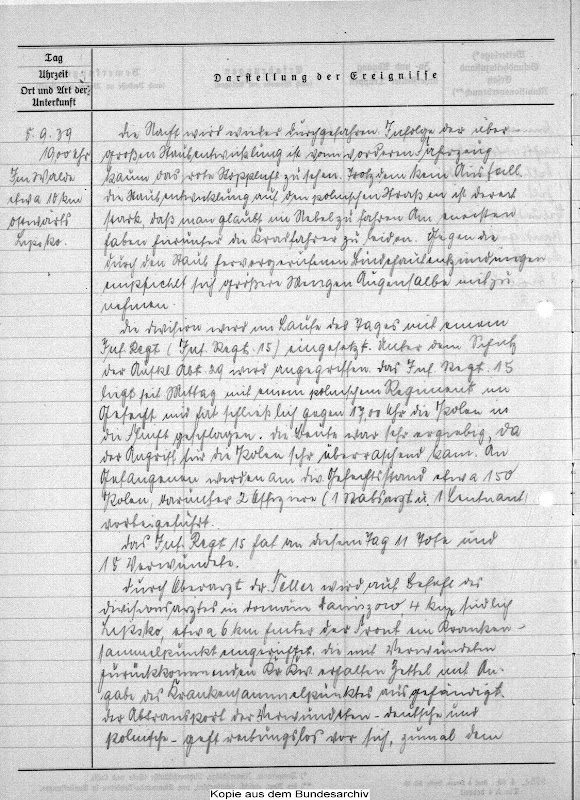 Tag
Uhrzeit
Ort und Art der
Unterkunft
Darstellung der Ereignisse
8.9.39
1900 Uhr
Im Walde
etwa 10 km
ostwärts
Lipsko.
Die Nacht wird wieder durchgefahren. Infolge der über
großen Staubentwicklung ist vom vorderen Fahrzeug
kaum das rote Stopplicht zu sehen. Trotzdem kein Ausfall
die Staubentwicklung auf den polnischen Straßen ist derart
stark, daß man glaubt im Nebel zu fahren. Am meisten
haben hierunter die Kradfahrer zu leiden. Gegen die
durch den Staub hervorgerufenen Bindehautentzündungen
empfiehlt sich größere Mengen Augensalbe mitzu
nehmen.
Die Division wird im Laufe des Tages mit einem
Inf. Regt. (Inf. Regt. 15) eingesetzt. Unter dem Schutz
der Aufkl. Abt. 29 wird angegriffen. Das Inf. Regt. 15
liegt seit Mittag mit einem polnischem Regiment im
Gefecht und hat schließlich gegen 1700 Uhr die Polen in
die Flucht geschlagen. Die Beute war sehr ergiebig, da
der Angriff für die Polen sehr überraschend kam. An
Gefangenen werden am Div. Gefechtsstand etwa 150
Polen, darunter 2 Offiziere (1 Stabsarzt u. 1 Leutnant)
vorbeigeführt.
Das Inf. Regt 15 hat an diesem Tag 11 Tote und
15 Verwundete.
Durch Oberarzt Dr. Teller wird auf Befehl des
Divisionsarztes in Domaine Daniszow 4 km südlich
Lipsko, etwa 6 km hinter der Front ein Kranken-
sammelpunkt eingerichtet. Die mit Verwundeten
zurückkommenden Kr Kw erhalten Zettel mit An-
gabe des Krankensammelpunktes ausgehändigt.
Der Abtransport der Verwundeten - deutsche und
polnische - geht reibungslos vor sich, zumal dem
Kopie aus dem Bundesarchiv